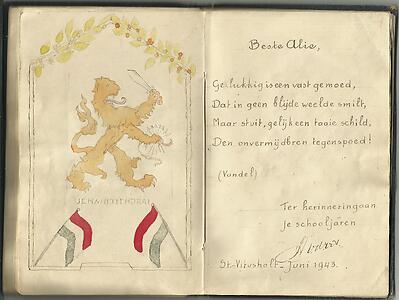 JE MAINTIENDRAI
Beste Alie,
Gelukkig is een vast gemoed,
Dat in geen blijde weelde smilt,
Maar stuit, gelijk een taaie schild,
Den onvermijdbren tegenspoed!
(Vondel)
Ter herinnering aan
je schooljaren
St.-Vitusholt - Juni 1943.